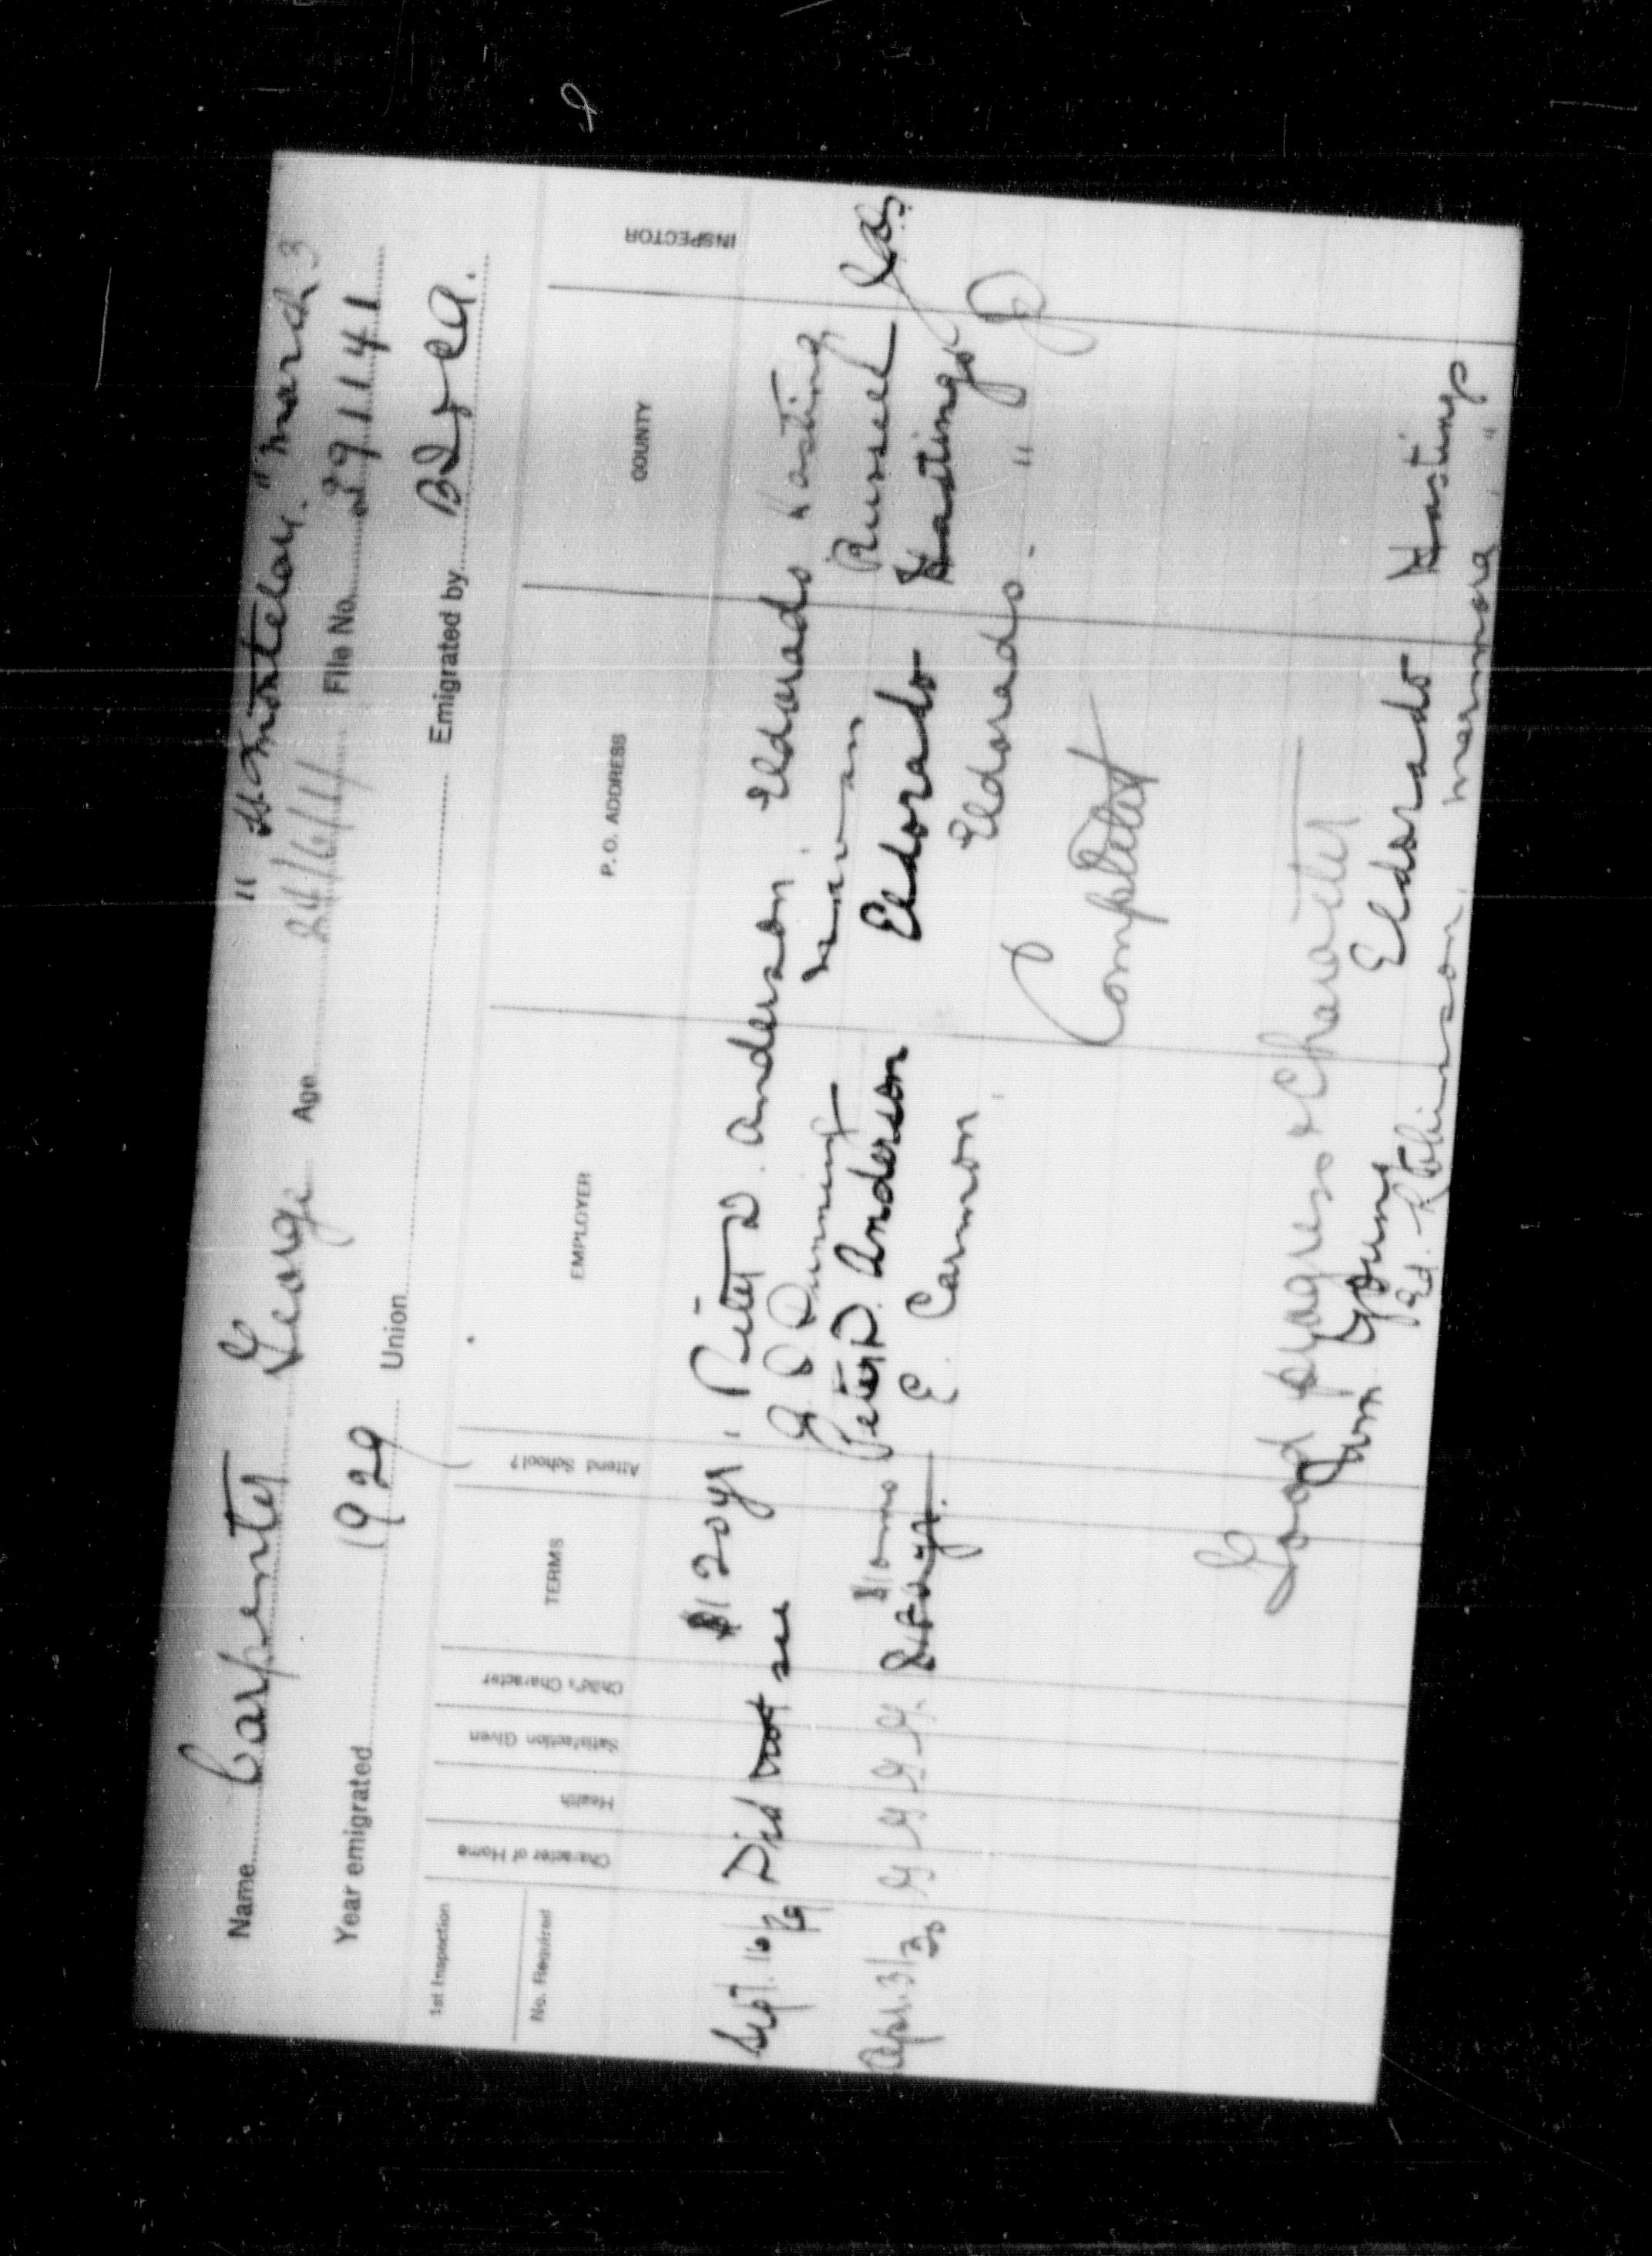 " Montclair." March 3
Name Carpenter George Age 24/6/11 File No. 291141
Year emigrated 1929 Union Emigrated by B I & CA.
1st Inspection
No. Required
Character of Home Health Satisfaction Given Child's Character TERMS Attend School? EMPLOYER P. O. ADDRESS COUNTY INSPECTOR
Sept. 16/29 Did not see $120 yr Peter D. Anderson Eldorado Hasting
Dunning Russell
Apr. 3/30 G G G G $10 mo Peter D. Anderson Eldorado Hastings
E. Cannon Eldorado "
Completed
Good progress & Character
Young Eldorado Hastings
Ed. Robinson, Marmora, "